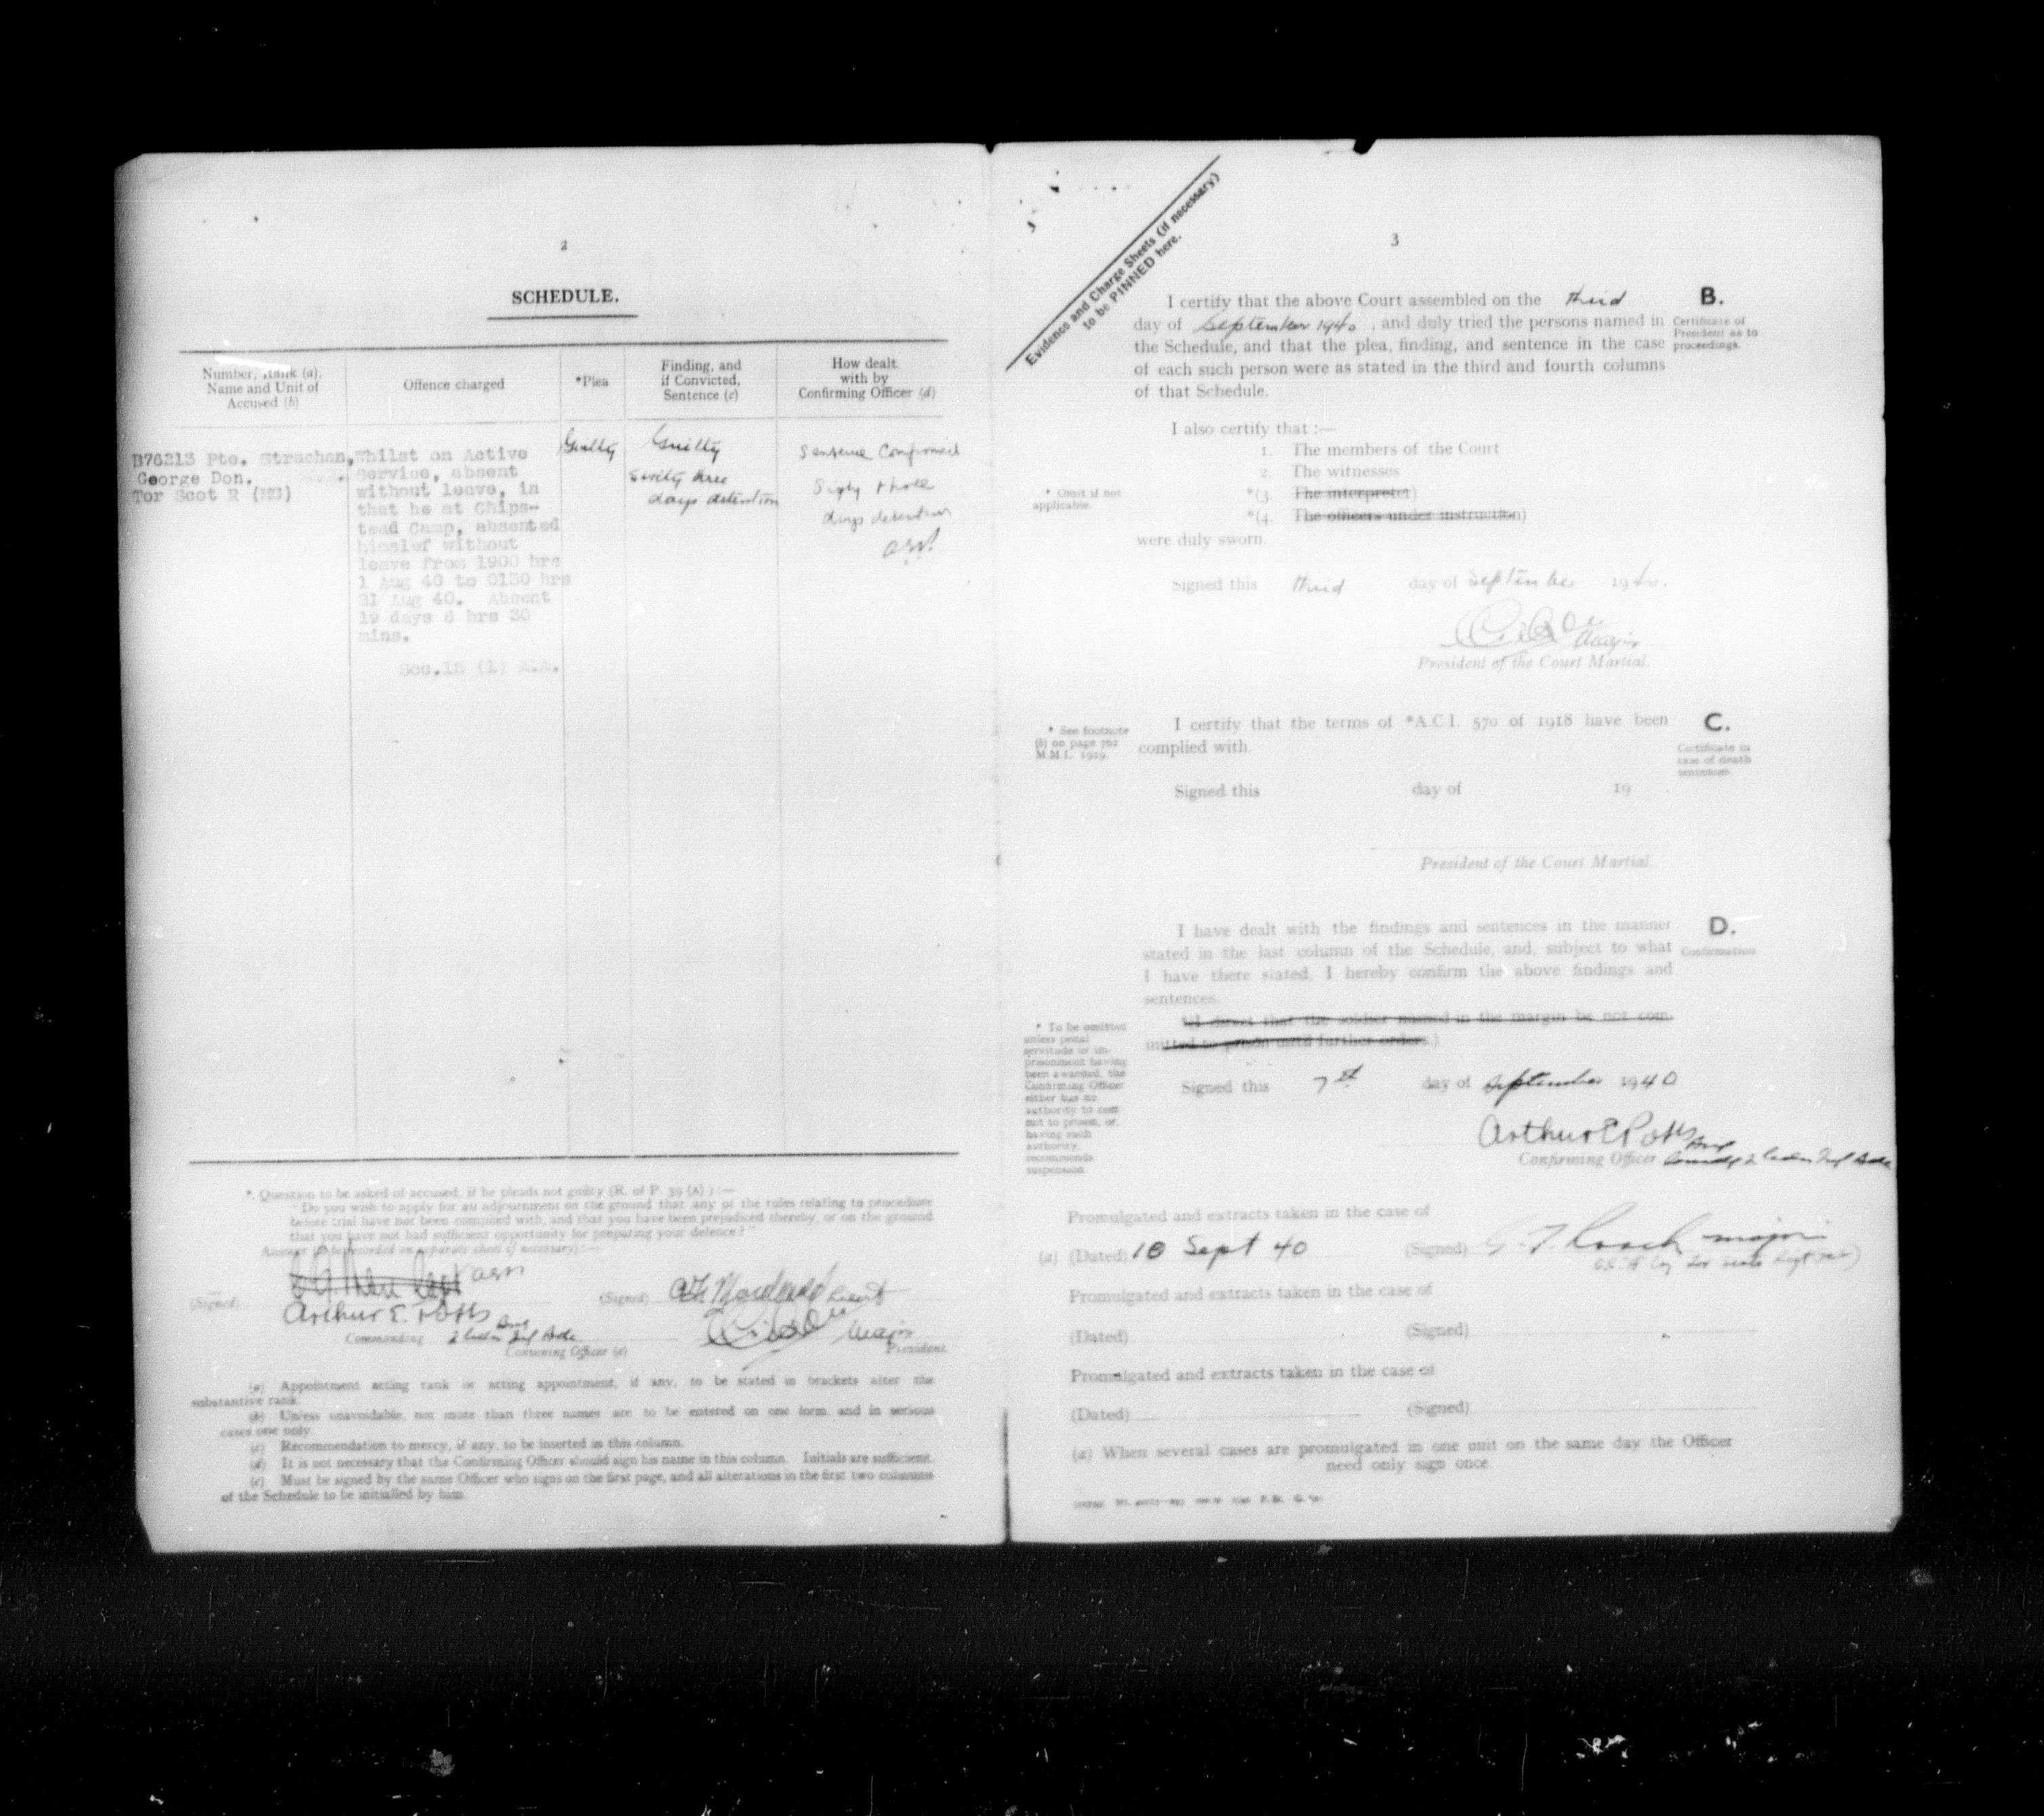 2
SCHEDULE.
Number, Rank (a), Name and Unit of Accused (b)
Offence charged
*Plea
Finding, and if Convicted, Sentence (c)
How dealt with by Confirming Officer (d)
B76213 Pte. Strachan,
George Don.
Tor Scot R (MG)
Whilst on Active
Service, absent
without leave, in
that he at Chips-
tead Camp, absented
himslef without
leave from 1900 hrs
1 Aug 40 to 0130 hrs
21 Aug 40. Absent
19 days 6 hrs 30
mins.
Sec.15 (1) A.A.
Guilty
Guilty
Sixty three
days detention
Sentence Confirmed
Sixty three
days detention
*. Question to be asked of accused, if he pleads not guilty (R. of P. 39 (A) ) :—
"Do you wish to apply for an adjournment on the ground that any of the rules relating to procedure
before trial have not been complied with, and that you have been prejudiced thereby, or on the ground
that you have not had sufficient opportunity for preparing your defence?"
Answer (to be recorded on separate sheet if necessary) :—
(Signed)
Arthur E. Potts
Commanding
Convening Officer (e)
(Signed) Lieut
Major
President.
(a) Appointment acting rank or acting appointment, if any, to be stated in brackets after the
substantive rank.
(b) Unless unavoidable, not more than three names are to be entered on one form, and in serious
cases one only.
(c) Recommendation to mercy, if any, to be inserted in this column.
(d) It is not necessary that the Confirming Officer should sign his name in this column. Initials are sufficient.
(e) Must be signed by the same Officer who signs on the first page, and all alterations in the first two columns
of the Schedule to be initialled by him.
Evidence and Charge Sheets (if necessary)
to be PINNED here.
3
I certify that the above Court assembled on the third
day of September 1940, and duly tried the persons named in
the Schedule, and that the plea, finding, and sentence in the case
of each such person were as stated in the third and fourth columns
of that Schedule.
B.
Certificate of
President as to
proceedings.
I also certify that :—
1. The members of the Court
2. The witnesses
*(3. The interpreter)
*(4. The officers under instruction)
* Omit if not
applicable.
were duly sworn.
Signed this third day of September 1940.
Major
President of the Court Martial.
I certify that the terms of *A.C.I. 570 of 1918 have been
complied with.
* See footnote
(b) on page 702
M.M.L. 1929.
C.
Certificate in
case of death
sentences.
Signed this day of 19
President of the Court Martial.
I have dealt with the findings and sentences in the manner
stated in the last column of the Schedule, and, subject to what
I have there stated, I hereby confirm the above findings and
sentences.
D.
Confirmation
*(I direct that the soldier named in the margin be not com-
mitted to prison until further orders.)
* To be omitted
unless penal
servitude or im-
prisonment having
been awarded, the
Confirming Officer
either has no
authority to com-
mit to prison, or,
having such
authority,
recommends
suspension.
Signed this 7th day of September 1940
Arthur E Potts
Confirming Officer.
Promulgated and extracts taken in the case of
(a) (Dated) 10 Sept 40 (Signed) Major
Promulgated and extracts taken in the case of
(Dated) (Signed)
Promulgated and extracts taken in the case of
(Dated) (Signed)
(a) When several cases are promulgated in one unit on the same day the Officer
need only sign once.